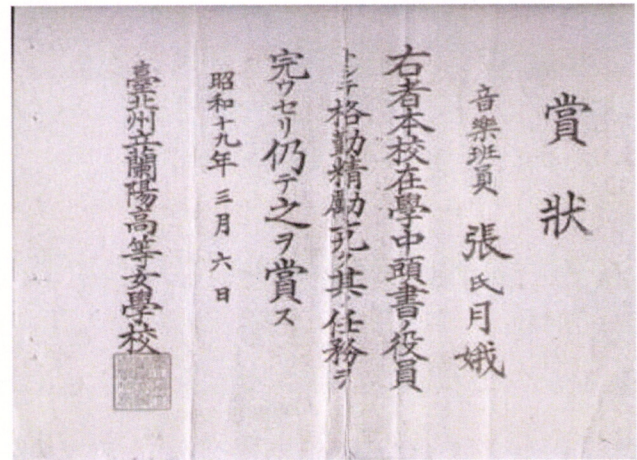 賞狀
音樂班員 張氏月娥
右者本校在學中頭書ノ役員
トシテ格勤精勵克ク其ノ任務ヲ
完ウセリ仍テ之ヲ賞ス
昭和十九年三月六日
臺北州立蘭陽高等女學校